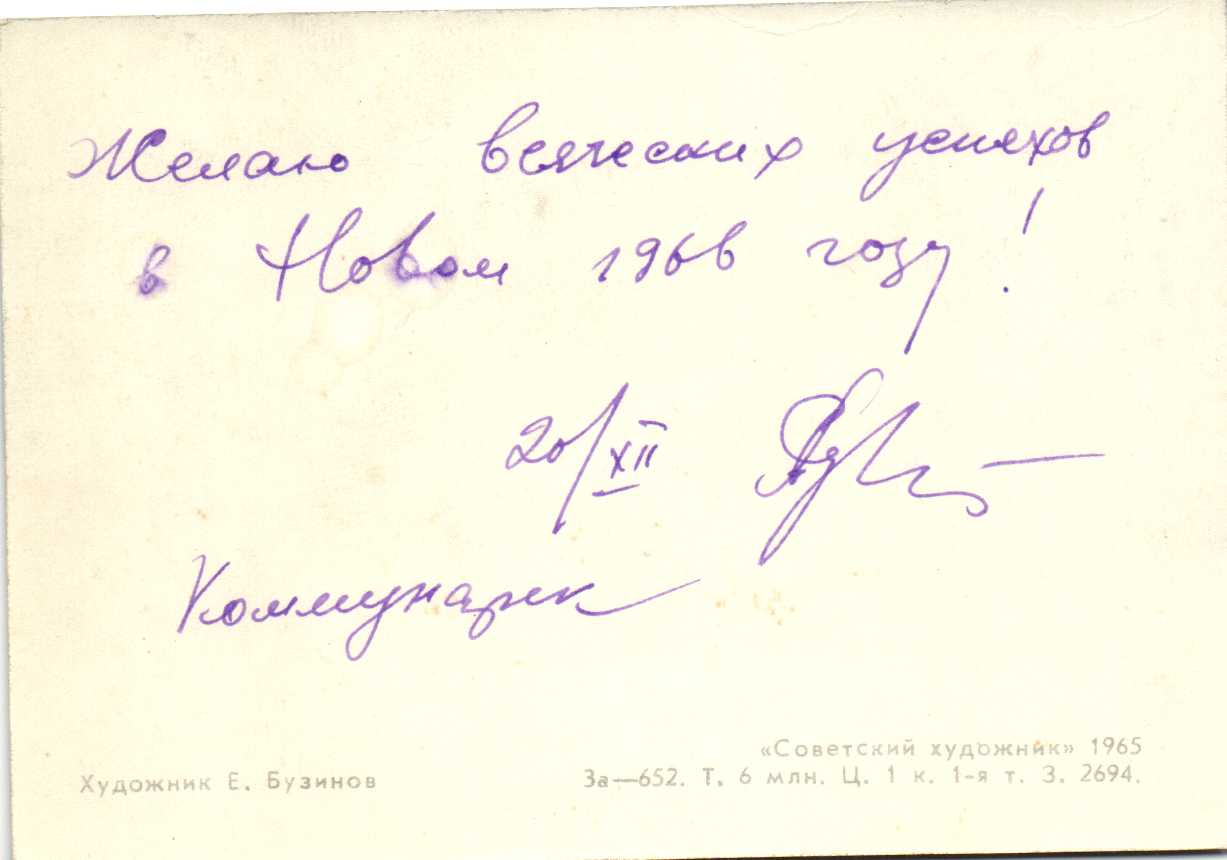 Желаю всяческих успехов
в Новом 1966 году!
20/XII
Коммунарк
«Советский художник» 1965
Художник Е. Бузинов За—652. Т. 6 млн. Ц. 1 к. 1-я т. З. 2694.